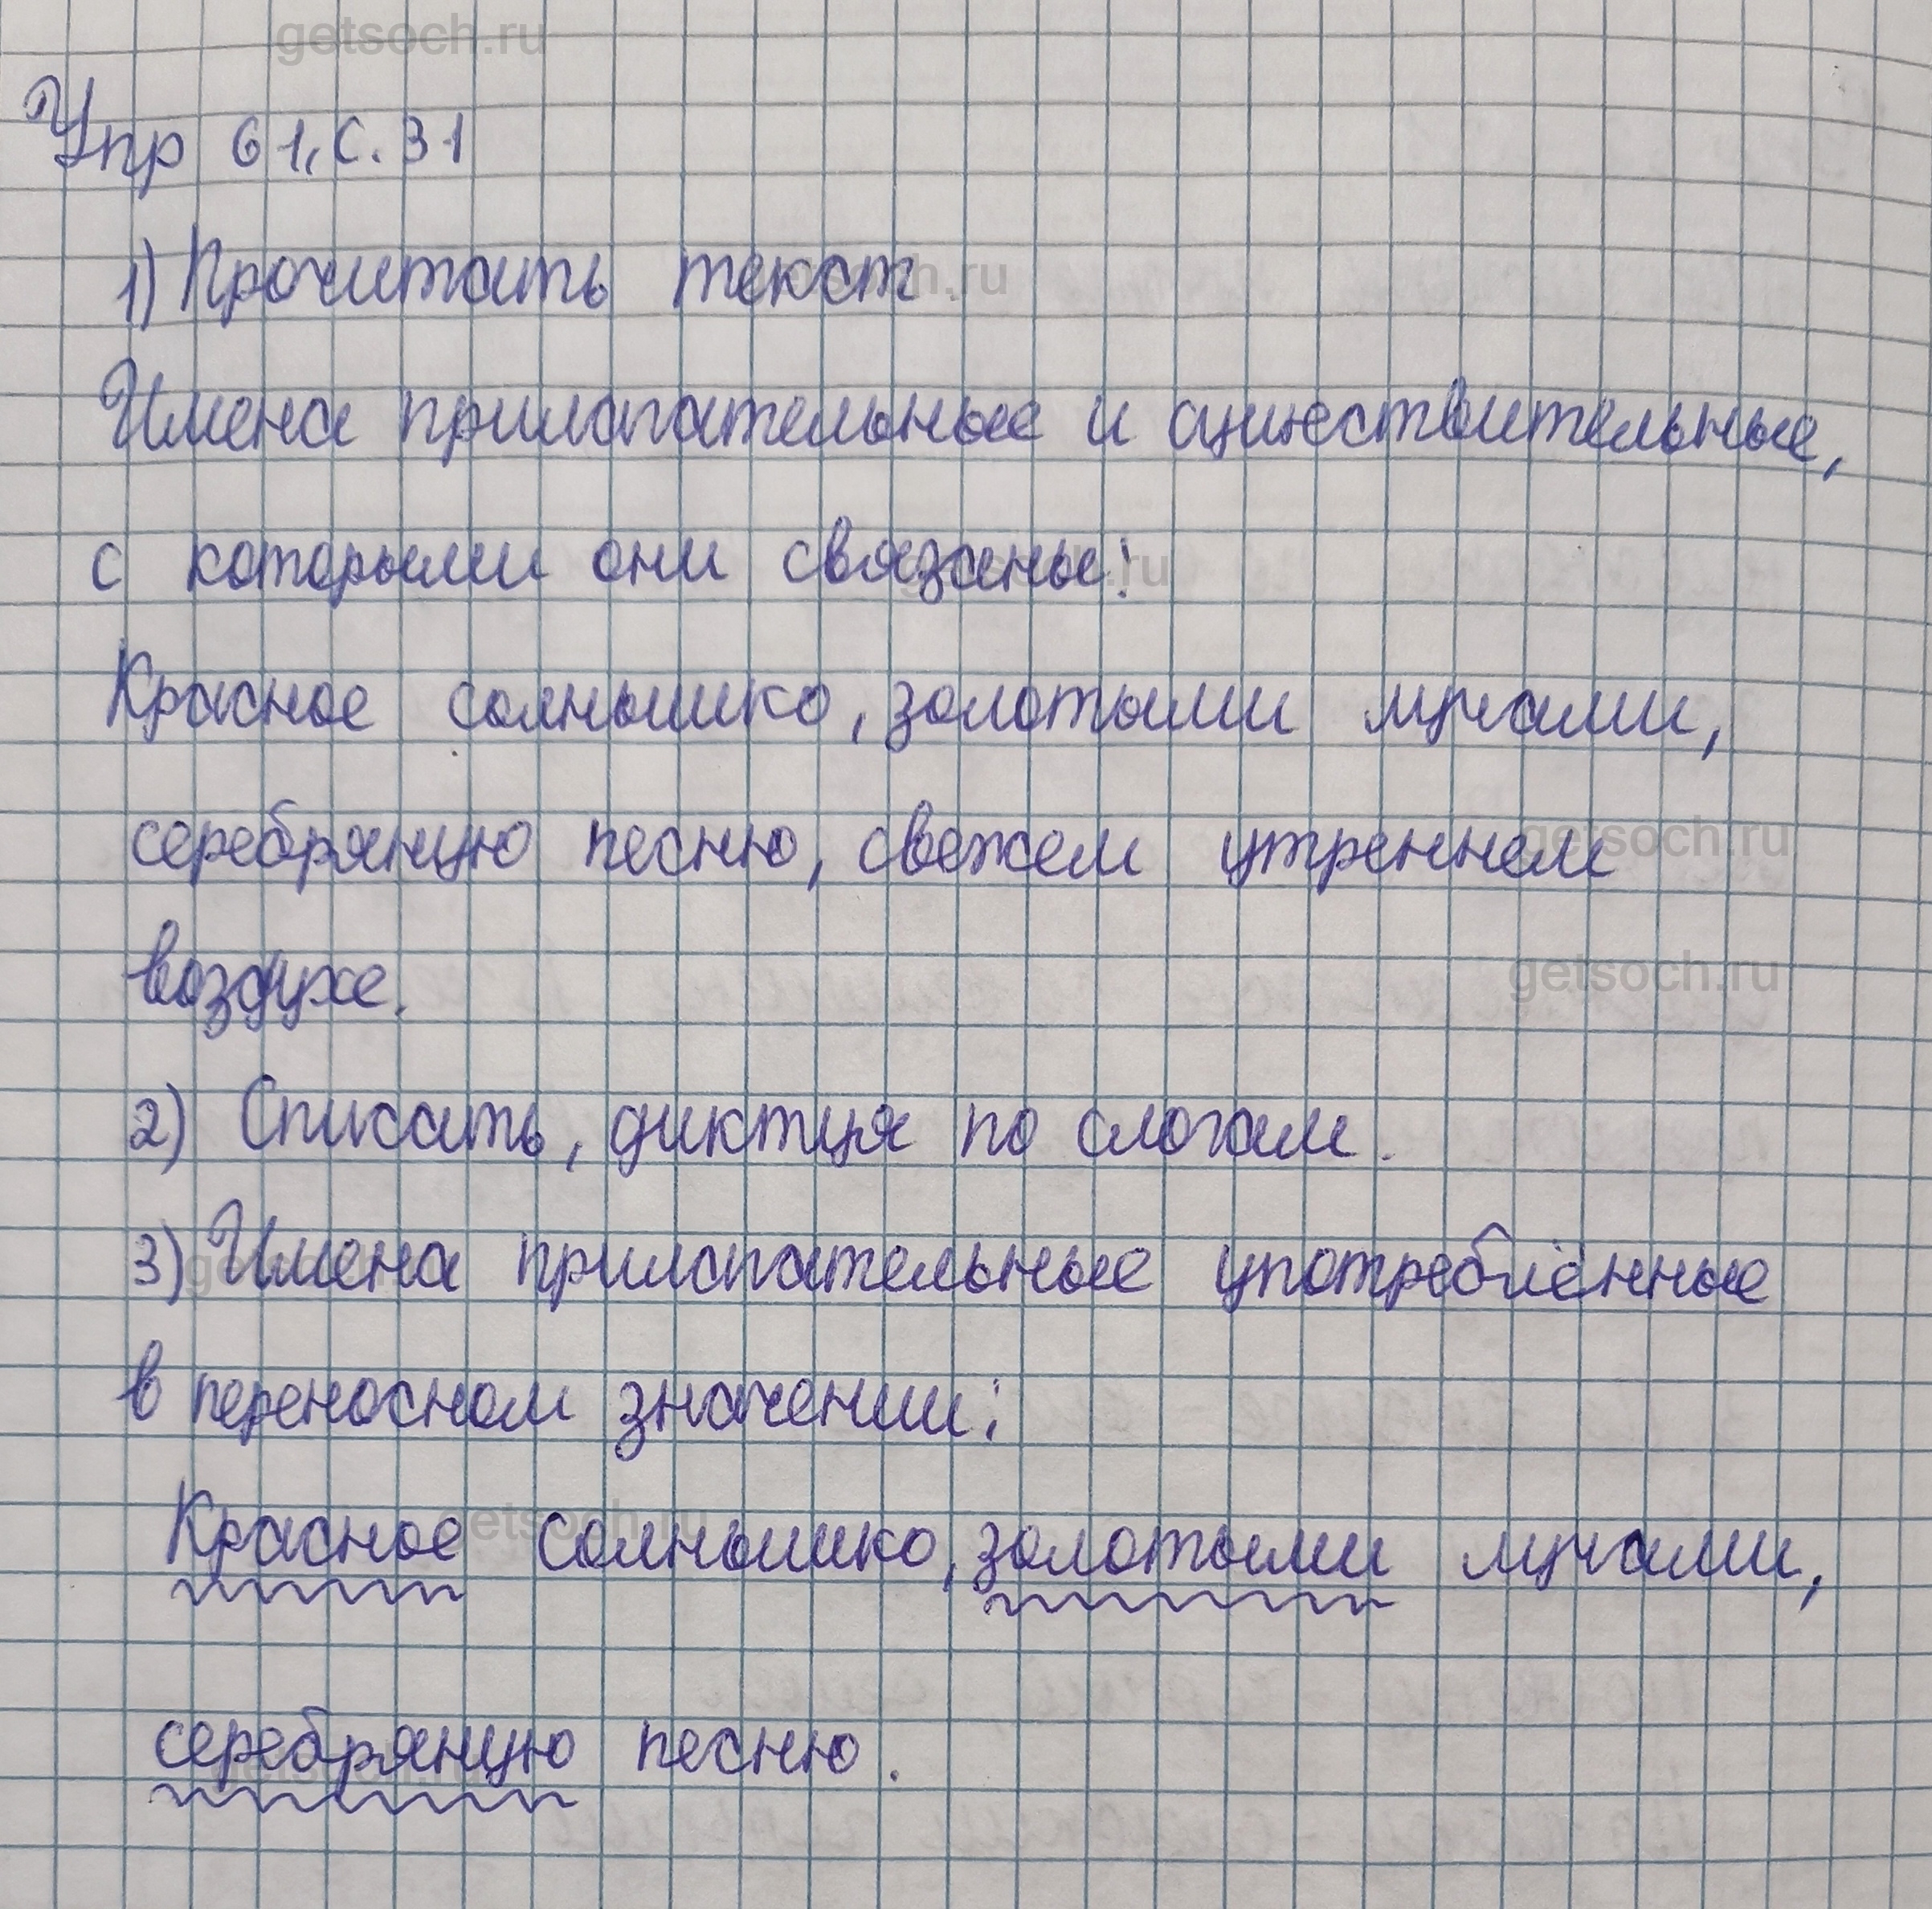 getsoch.ru
Упр 61, с. 31
1) Прочитать текст.
Имена прилагательные и существительные,
с которыми они связаны:
Красное солнышко, золотыми лучами,
серебряную песню, свежем утреннем
воздухе.
2) Списать, диктуя по слогам.
3) Имена прилагательные употреблённые
в переносном значении:
Красное солнышко, золотыми лучами,
серебряную песню.